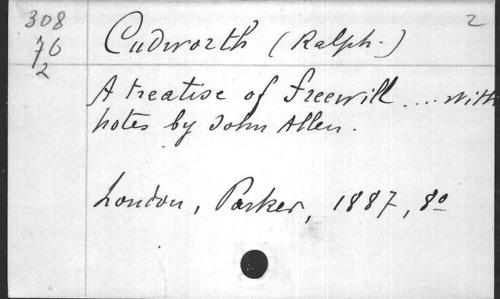 308 Cudworth (Ralph.) 2
76
2
A treatise of freewill .... with
notes by John Allen.
London, Parker, 1887, 8o